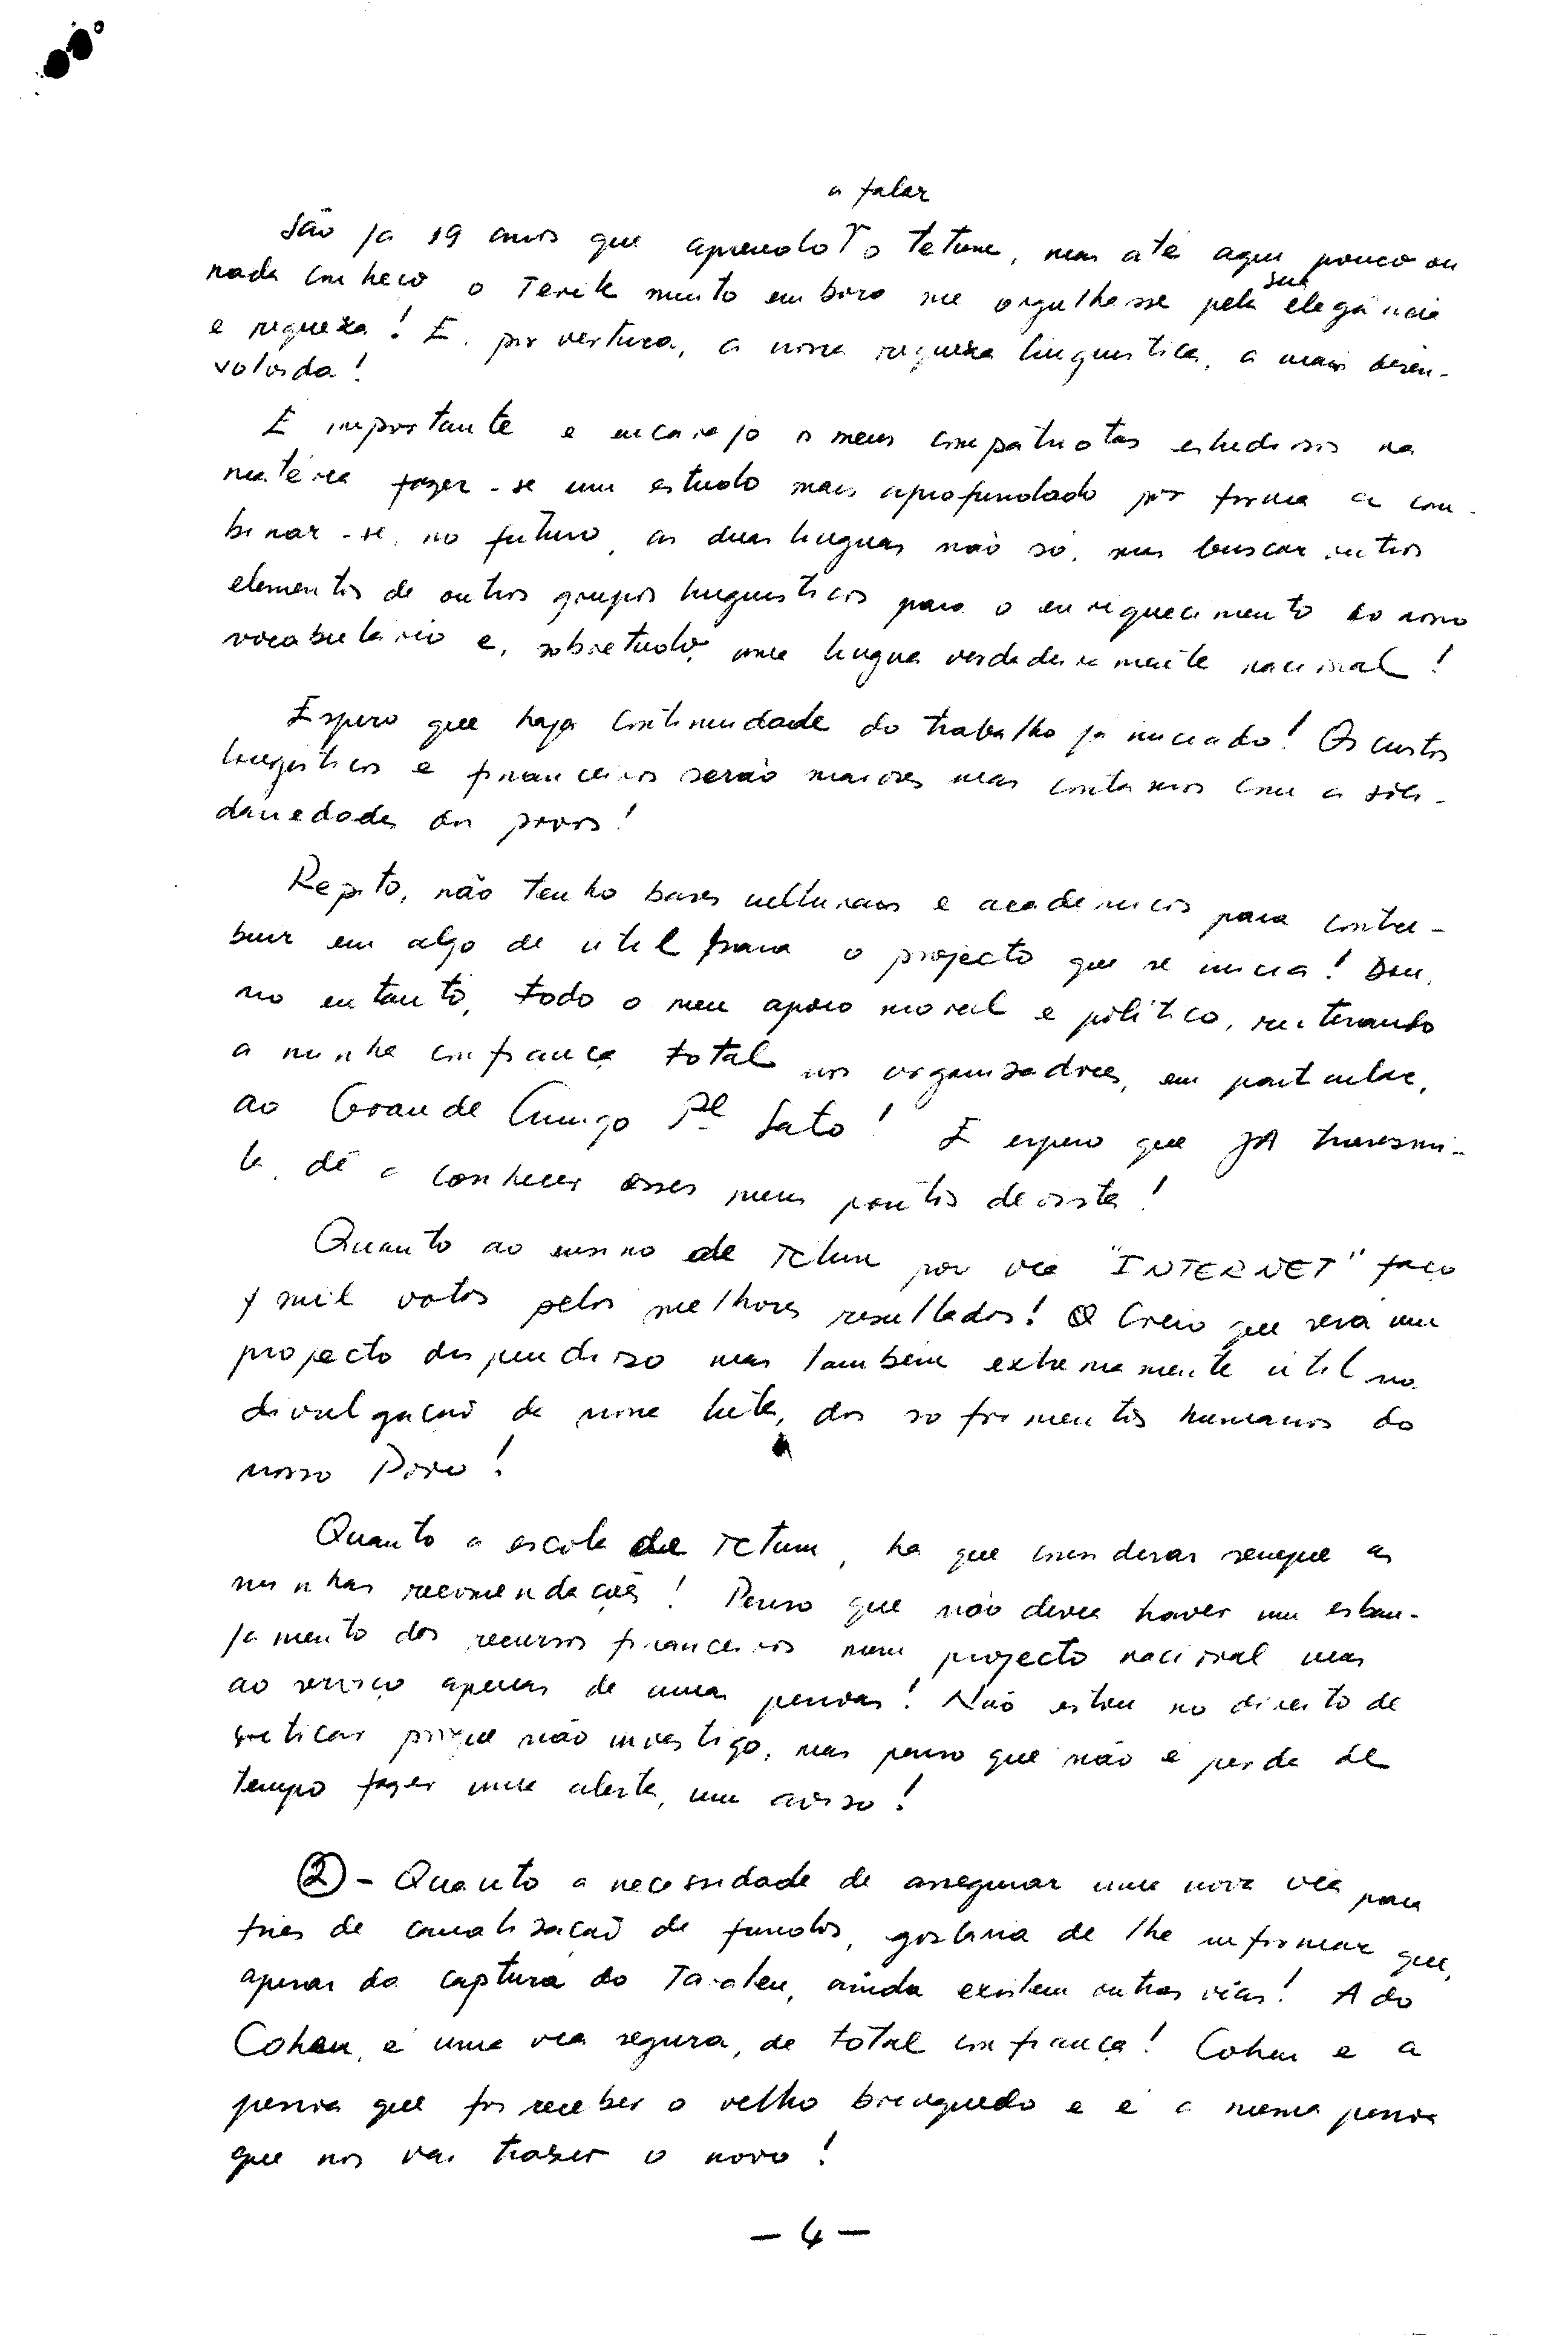 a falar
São já 19 anos que aprendo o tetum, mas até aqui pouco ou
nada conheço o Terik muito embora me orgulhasse pela sua elegância
e riqueza! É, por ventura, a nossa riqueza linguística, a mais desen-
volvida!
É importante e encorajo os meus compatriotas estudiosos na
matéria fazer-se um estudo mais aprofundado por forma a com-
binar-se, no futuro, as duas línguas não só, mas buscar outros
elementos de outros grupos linguísticos para o enriquecimento do nosso
vocabulário e, sobretudo, uma língua verdadeiramente nacional!
Espero que haja continuidade do trabalho já iniciado! Os custos
logísticos e financeiros serão maiores mas contamos com a soli-
dariedade dos povos!
Repito, não tenho bases culturais e académicos para contri-
buir em algo de útil para o projecto que se inicia! Dou,
no entanto, todo o meu apoio moral e político, reiterando
a minha confiança total nos organizadores, em particular,
ao Grande Amigo Pe Sato! E espero que JA transmi-
ta, dê a conhecer esses meus pontos de vista!
Quanto ao ensino de Tetum por via "INTERNET" faço
mil votos pelos melhores resultados! Creio que será um
projecto dispendioso mas também extremamente útil na
divulgação da nossa luta, dos sofrimentos humanos do
nosso Povo!
Quanto a escola de Tetum, há que considerar sempre as
minhas recomendações! Penso que não devia haver um esban-
jamento dos recursos financeiros num projecto nacional mas
ao serviço apenas de umas pessoas! Não estou no direito de
criticar porque não investigo, mas penso que não é perda de
tempo fazer uma alerta, um aviso!
② - Quanto a necessidade de assegurar uma nova via para
fins de canalização de fundos, gostaria de lhe informar que,
apesar da captura do Tavaleu, ainda existem outras vias! A do
Cohen, é uma via segura, de total confiança! Cohen é a
pessoa que foi receber o velho brinquedo e é a mesma pessoa
que nos vai trazer o novo!
- 4 -